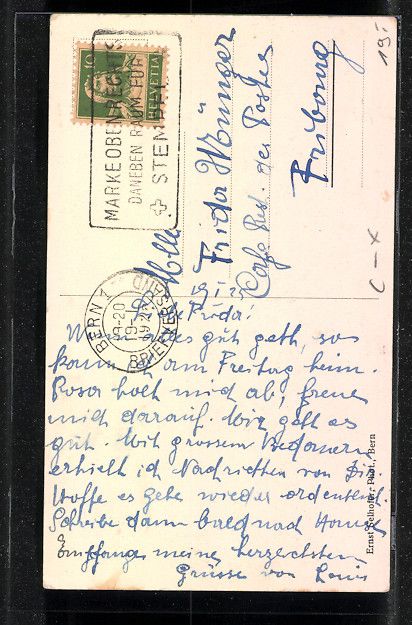 10
HELVETIA
MARKE OBEN RECHTS
DANEBEN RAUM FÜR
STEMPEL
BERN 1
19-20
BRIEFVERSAND
Mlle
Frida Münger
Café Rest. des Postes
Fribourg
19.-
C-X
Wenn alles gut geht, so
komme ich am Freitag heim.
Rosa holt mich ab, freue
mich darauf. Mir geht es
gut. Mit grossem Bedauern
erhielt ich Nachrichten von Dir.
Hoffe es gehe wieder ordentlich.
Schreibe dann bald nach Hause
Empfange meine herzlichsten
Grüsse von
Ernst Selhofer, Phot., Bern